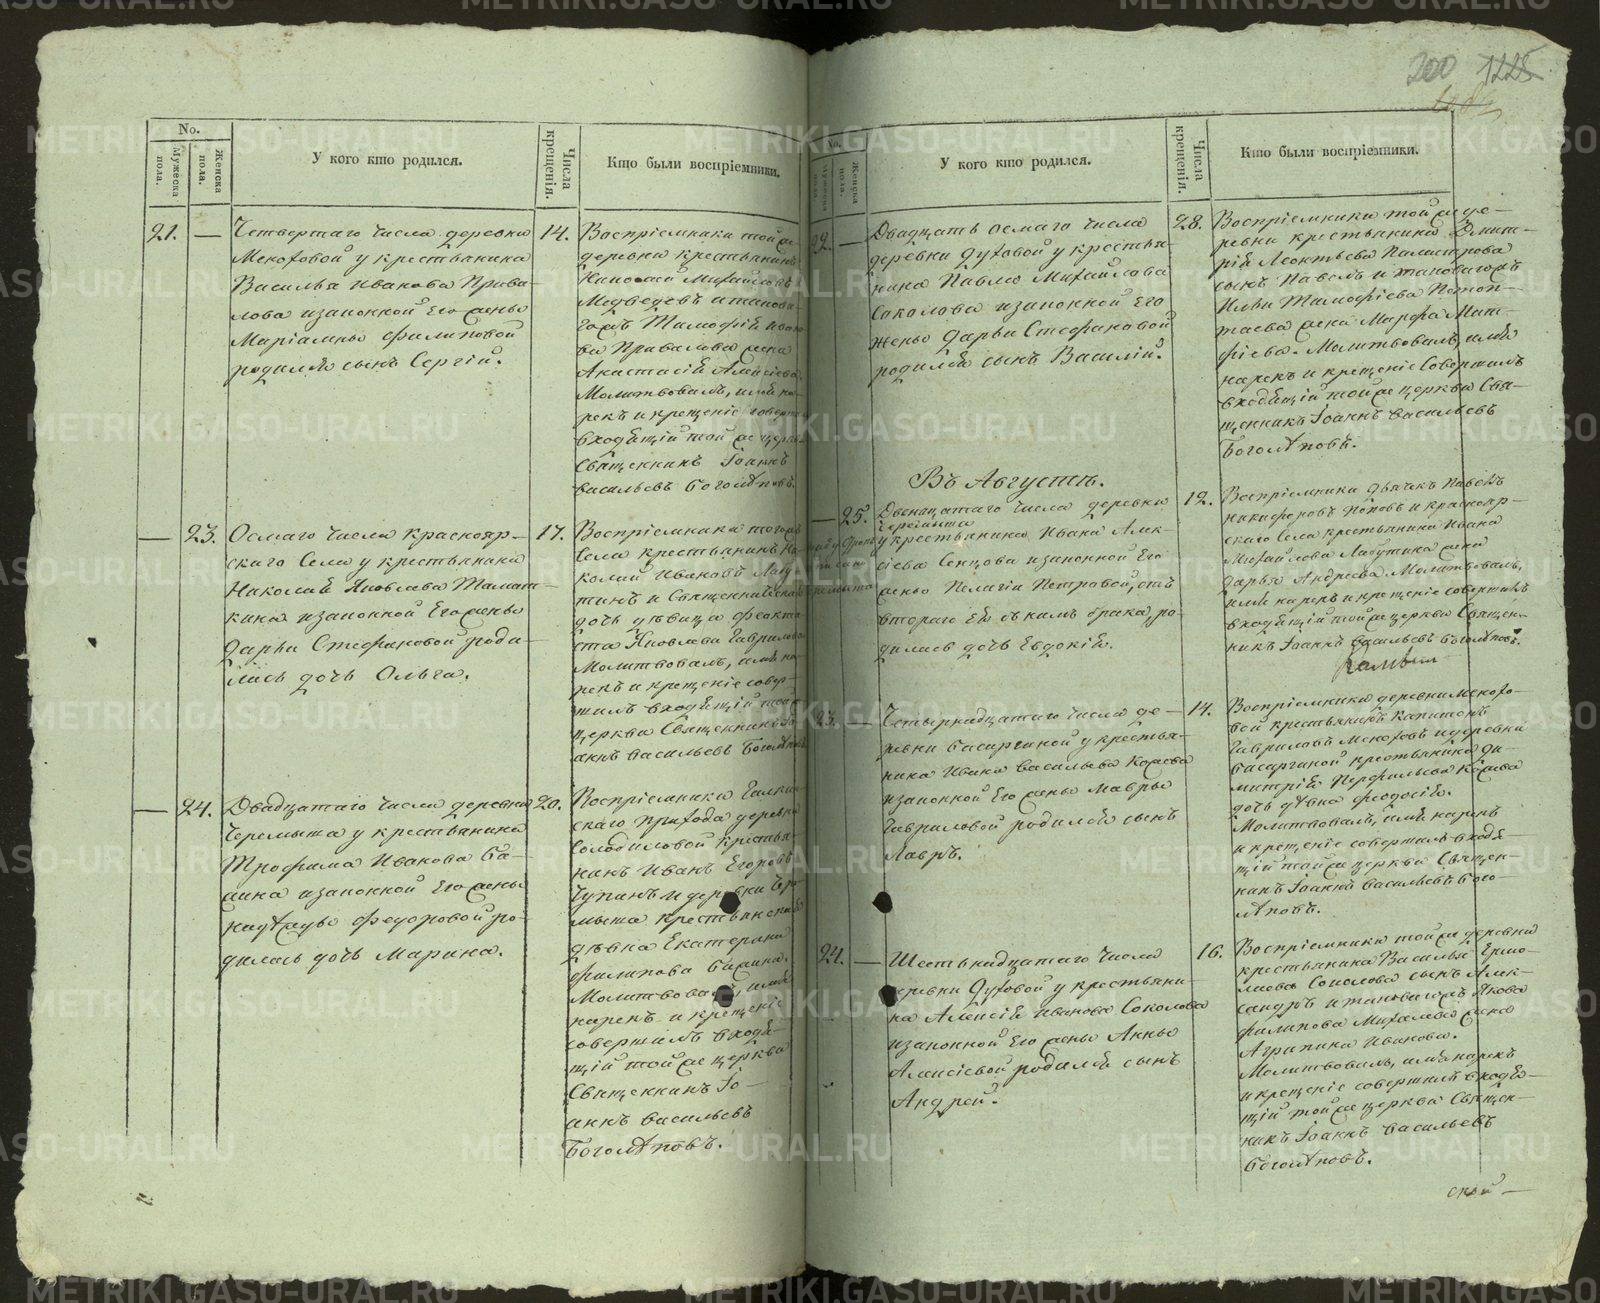 200 1225
No.
Мужеска пола.
Женска пола.
У кого кто родился.
Числа крещенія.
Кто были воспріемники.
21. — Четвертаго числа деревни
Мекотовой у крестьянина
Василья Иванова Прива-
лова и законной его жены
Маріамны Филиповой
родился сынъ Сергій.
14. Воспріемники той же
деревни крестьянинъ
Николай Михайловъ
Медведевъ и таковаго
Тимофія Ивано-
ва Привалова жена
Анастасія Алексіева
Молитвовалъ, имя на-
рекъ и крещеніе соверши
входящій той же церкви
Священникъ Іоаннъ
Васильевъ Боголѣповъ.
— 23. Осмаго числа Краснояр-
скаго Села у крестьянина
Николая Яковлева
и законной его жены
Дарьи Стефановой роди-
лась дочь Ольга.
17. Воспріемники тогожъ
Села крестьянинъ Ни-
колай Ивановъ
и Священническая
дочь девица Феокти-
ста Яковлева Гаврилова
Молитвовалъ, имя на-
рекъ и крещеніе совер-
шилъ входящій той
церкви Священникъ Іо-
аннъ Васильевъ Боголѣповъ
— 24. Двадцатаго числа деревни
Черемыша у крестьянина
Трофима Иванова Ба-
жина и законной его жены
Федоровой ро-
дилась дочь Марина.
20. Воспріемники Галкин-
скаго прихода деревни
Солодиловой крестья-
нинъ Иванъ Егоровъ
Чупинъ и деревни Чер-
мыша крестьянская
девка Екатерина
Филипова Бажина.
Молитвовалъ, имя
нарекъ и крещеніе
совершилъ входя-
щій той же церкви
Священникъ Іо-
аннъ Васильевъ
Боголѣповъ.
No.
Мужеска пола.
Женска пола.
У кого кто родился.
Числа крещенія.
Кто были воспріемники.
22. — Двадцать осмаго числа
деревни Духовой у крестья-
нина Павла Михайлова
Соколова и законной его
жены Дарьи Стефановой
родился сынъ Василій.
28. Воспріемники той же де-
ревни крестьянина Дмит-
рія Леонтьева
сынъ Павелъ и таковагожъ
Ильи Тимофіева
жена Марфа Мат-
фіева. Молитвовалъ, имя
нарекъ и крещеніе совершилъ
входящій той же церкви Свя-
щенникъ Іоаннъ Васильевъ
Боголѣповъ.
Въ Августѣ.
— 25. Двенатцатаго числа деревни
Черемыша
у крестьянина Ивана Алек-
сіева Сенцова и законной его
жены Пелагіи Петровой, отъ
втораго ея съ нимъ брака, ро-
дилась дочь Евдокія.
12. Воспріемники дьячекъ Павелъ
Никифоровъ Поповъ и краснояр-
скаго Села крестьянина Ивана
Михайлова жена
Дарья Андреева. Молитвовалъ,
имя нарекъ и крещеніе совершилъ
входящій той же церкви Священ-
никъ Іоаннъ Васильевъ Боголѣповъ.
23. — Четырнадцатаго числа де-
ревни Басаргиной у крестья-
нина Ивана Васильева
и законной его жены Мавры
Гавриловой родился сынъ
Лавръ.
14. Воспріемники деревни Мекото-
вой крестьянинъ Капитонъ
Гавриловъ Мекотовъ и деревни
Басаргиной крестьянина Ди-
митрія Перфильева
дочь девка Феодосія.
Молитвовалъ, имя нарекъ
и крещеніе совершилъ входя-
щій той же церкви Священ-
никъ Іоаннъ Васильевъ Бого-
лѣповъ.
24. — Шестьнадцатаго числа
деревни Духовой у крестьяни-
на Алексія Иванова Соколова
и законной его жены Анны
Алексіевой родился сынъ
Андрей.
16. Воспріемники той же деревни
крестьянина Василья Ермо-
лаева Соколова сынъ Алек-
сандръ и таковагожъ Якова
Филипова жена
Агрипина Иванова.
Молитвовалъ, имя нарекъ
и крещеніе совершилъ входя-
щій той же церкви Священ-
никъ Іоаннъ Васильевъ
Боголѣповъ.
METRIKI.GASO-URAL.RU